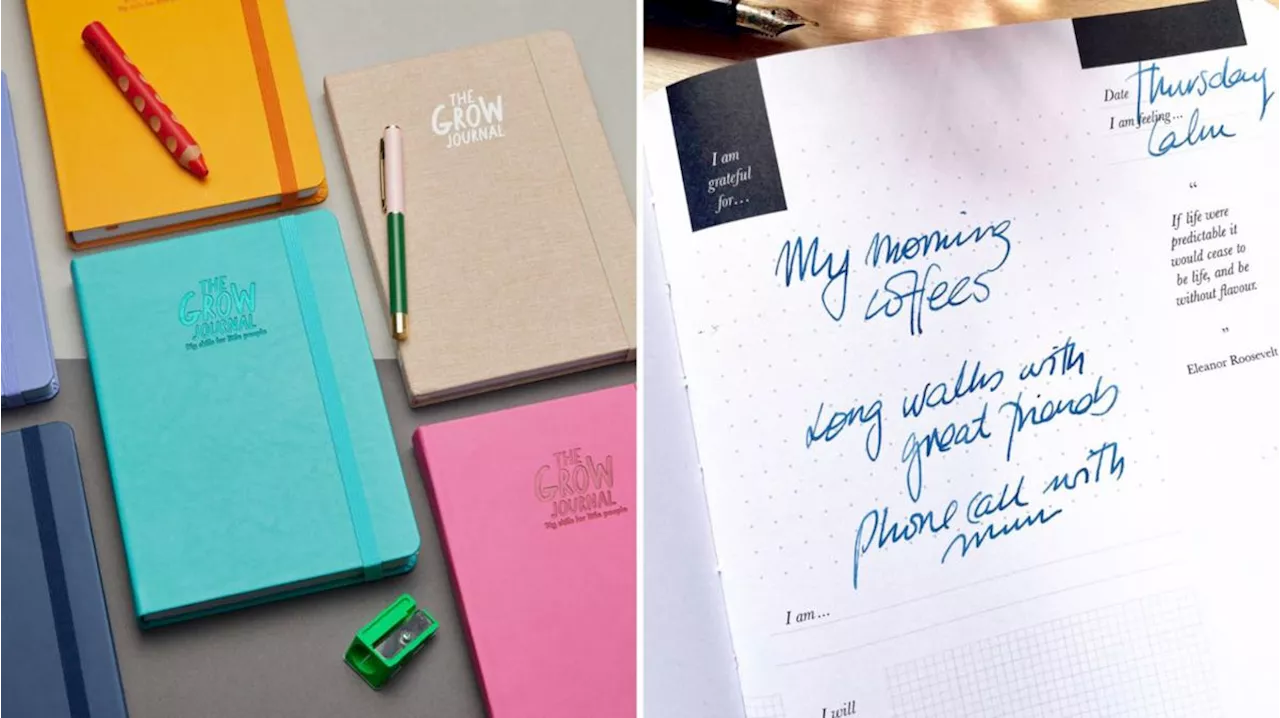 THE
GROW
JOURNAL
THE
GROW
JOURNAL
Big skills for little people
THE
GROW
JOURNAL
Big skills for little people
I am
grateful
for...
Date Thursday
I am feeling...
Calm
My morning
coffees
Long walks with
great friends
Phone call with
mum
“
If life were
predictable it
would cease to
be life, and be
without flavour.
”
Eleanor Roosevelt
I am...
I will